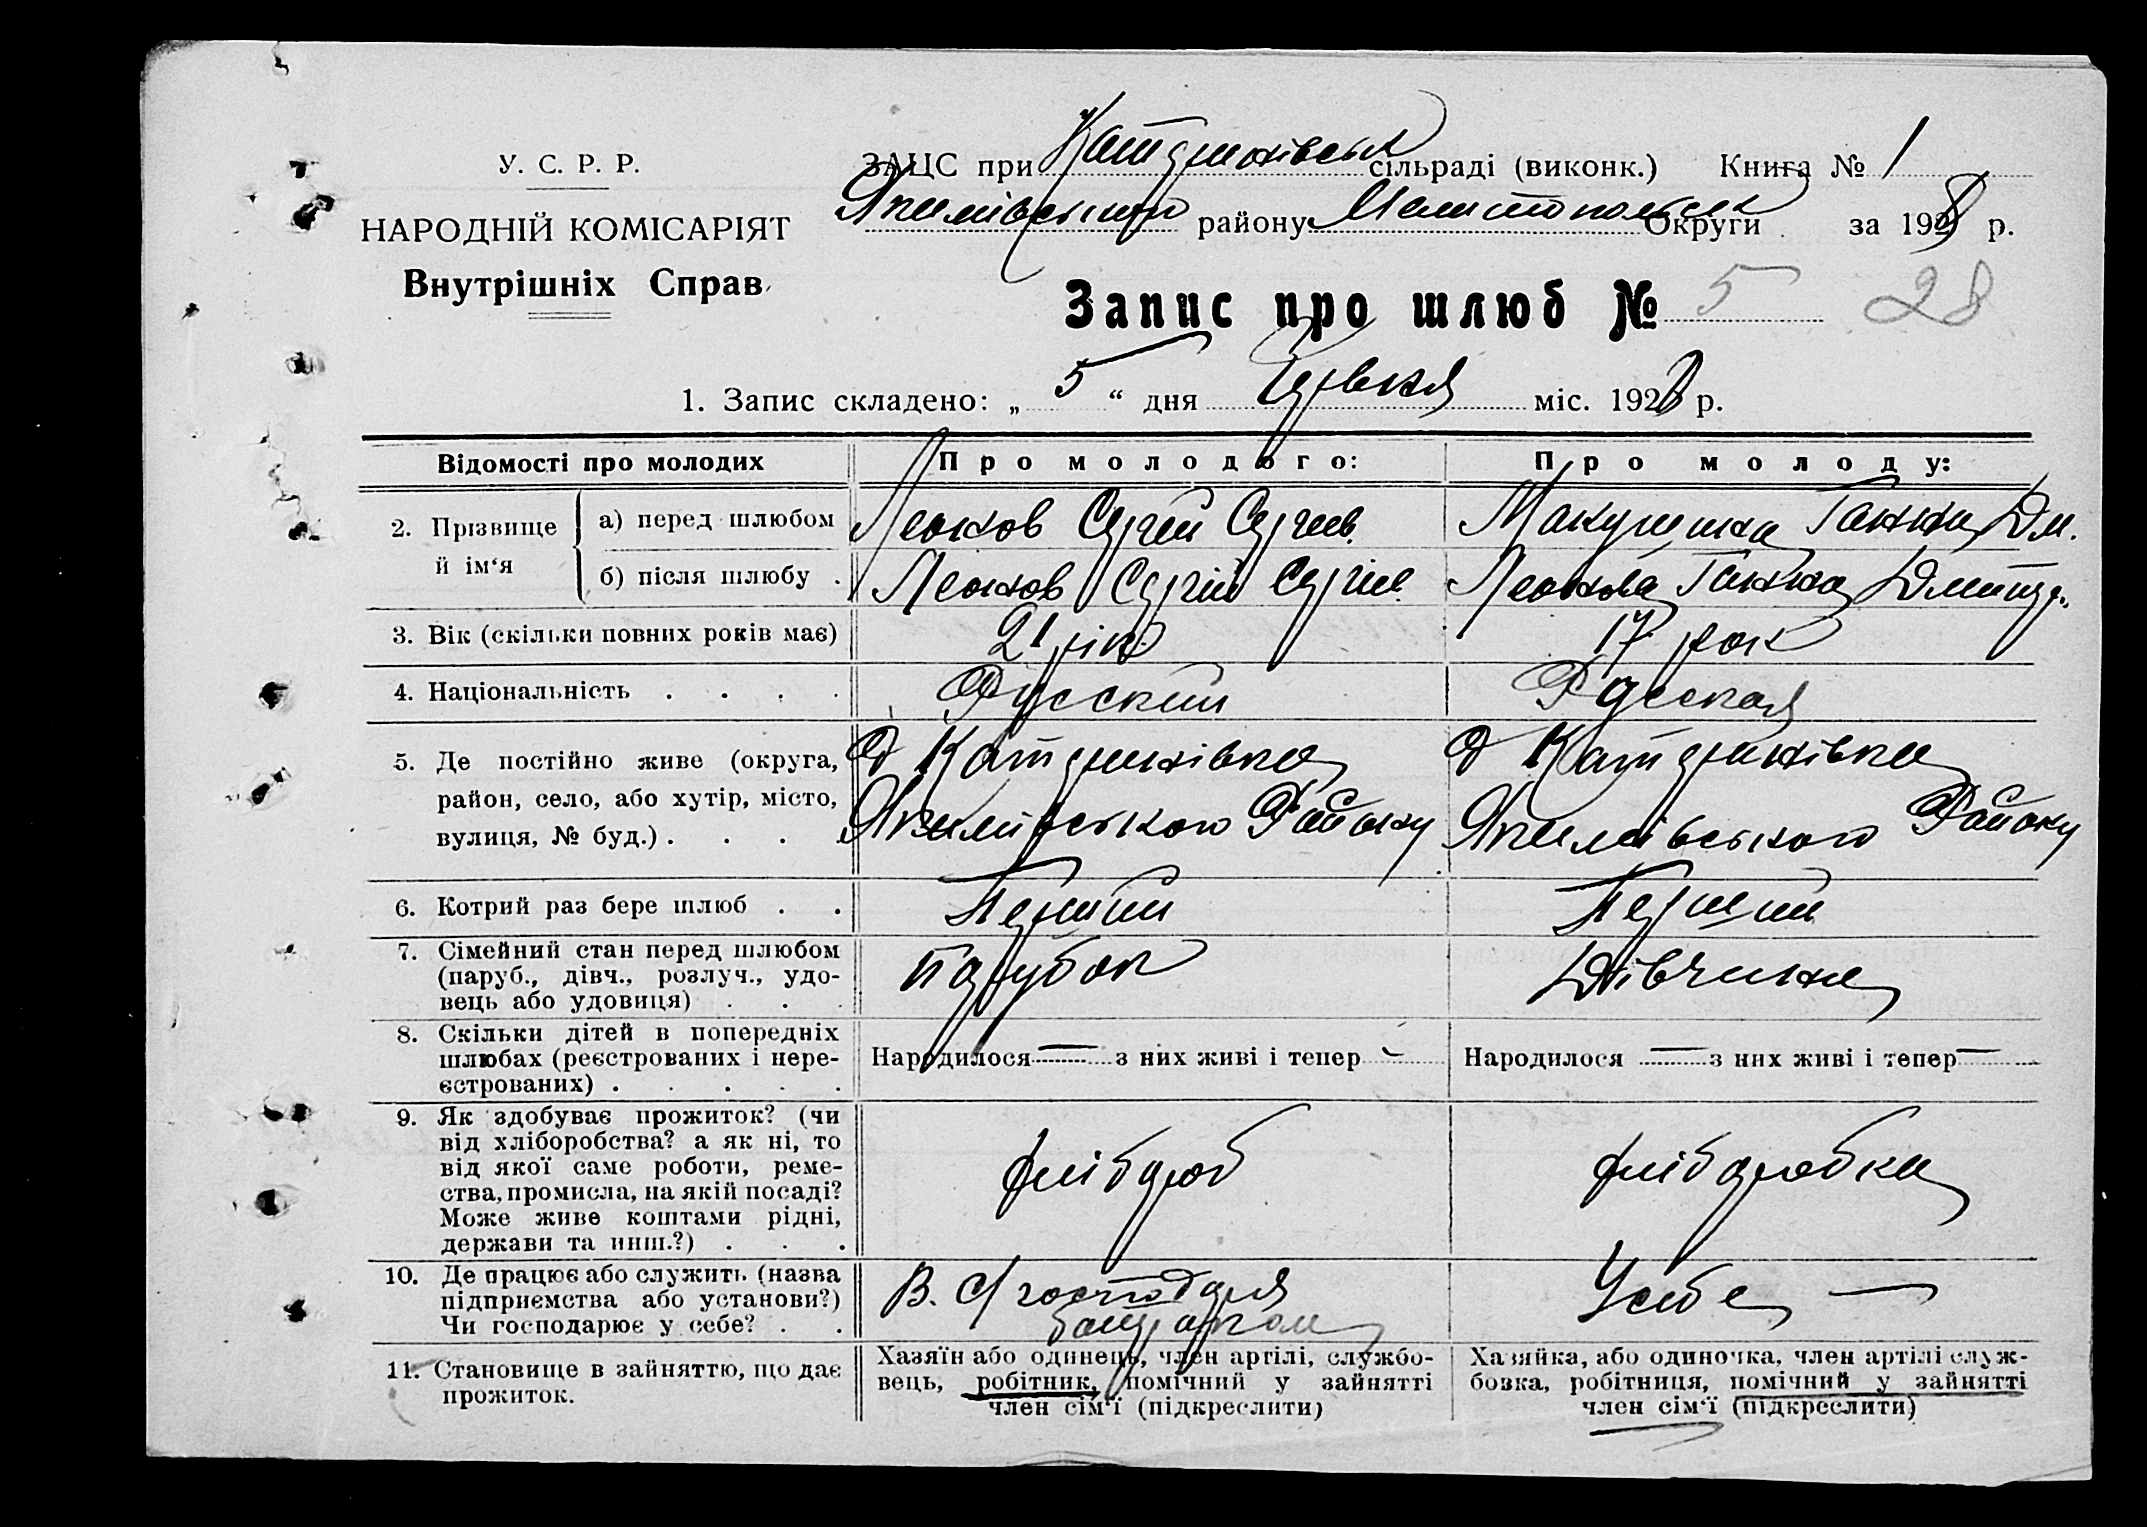 У. С. Р. Р.
НАРОДНІЙ КОМІСАРІЯТ
Внутрішніх Справ
ЗАЦС при сільраді (виконк.) Книга № 1
Якимівського району Мелітопольск Округи за 1928 р.
Запис про шлюб № 5 28
1. Запис складено: „ 5 “ дня міс. 1928 р.
Відомості про молодих
Про молодого:
Про молоду:
2. Прізвище й ім‘я
а) перед шлюбом
Леонов Сергій Сергіев.
Макушина Ганна Дм.
б) після шлюбу .
Леонов Сергій Сергіев.
Леонова Ганна Дмитр.
3. Вік (скільки повних років має)
21 рік
17 рок
4. Національність . . . .
Русский
Русская
5. Де постійно живе (округа,
район, село, або хутір, місто,
вулиця, № буд.) . . . .
Якимівського Району
Якимівського Району
6. Котрий раз бере шлюб . .
Перший
Перший
7. Сімейний стан перед шлюбом
(паруб., дівч., розлуч., удо-
вець або удовиця) . . .
парубок
Дівчина
8. Скільки дітей в попередніх
шлюбах (реєстрованих і нере-
єстрованих) . . . . .
Народилося — з них живі і тепер —
Народилося — з них живі і тепер —
9. Як здобуває прожиток? (чи
від хліборобства? а як ні, то
від якої саме роботи, реме-
ства, промисла, на якій посаді?
Може живе коштами рідні,
держави та инш.?) . . .
хлібороб
хліборобка
10. Де працює або служить (назва
підприємства або установи?)
Чи господарює у себе? . .
В. господаря
батраком
У себе —
11. Становище в зайняттю, що дає
прожиток.
Хазяїн або одинець, член артілі, службо-
вець, робітник, помічний у зайнятті
член сім‘ї (підкреслити)
Хазяйка, або одиночка, член артілі служ-
бовка, робітниця, помічний у зайнятті
член сім‘ї (підкреслити)